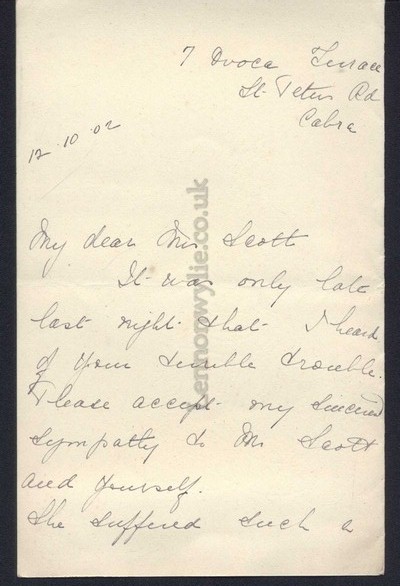 7 Ovoca Terrace
St. Peters Rd
Cabra
12.10.02
My dear Mrs Scott
It was only late
last night that I heard
of your terrible trouble.
Please accept my sincere
sympathy to Mr Scott
and yourself.
She suffered such a
lennonwylie.co.uk